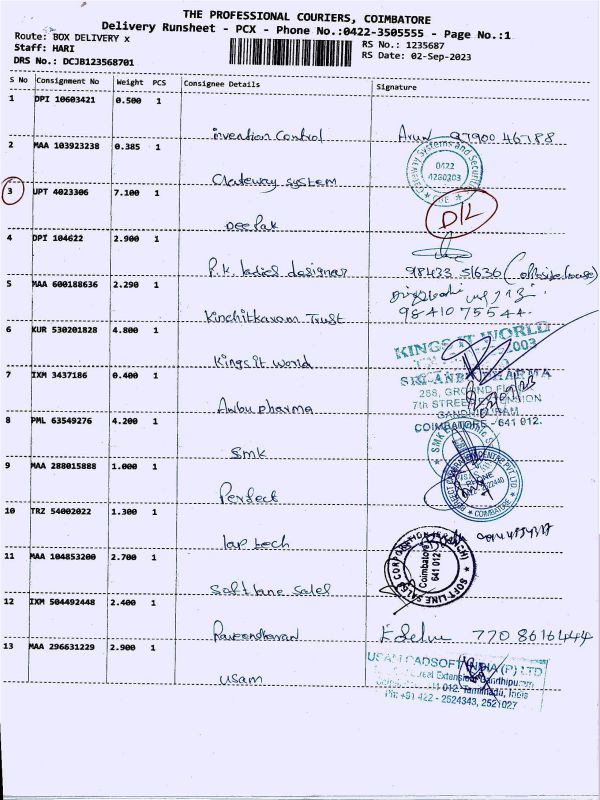 THE PROFESSIONAL COURIERS, COIMBATORE
Delivery Runsheet - PCX - Phone No.:0422-3505555 - Page No.:1
Route: BOX DELIVERY x
RS No.: 1235687
Staff: HARI
RS Date: 02-Sep-2023
DRS No.: DCJB123568701
S No Consignment No Weight PCS Consignee Details Signature
1 DPI 10603421 0.500 1
invention Control Arun 97900 46788
2 MAA 103923238 0.385 1
Gateway Systems and Security
0422
4280303
Gateway system
3 UPT 4023306 7.100 1
D/L
Deepak
4 DPI 104622 2.900 1
P.K. ladies designer 98433 51636
5 MAA 600188636 2.290 1
Kinchitkaram Trust 9841075544
6 KUR 530201828 4.800 1
KINGS IT WORLD
Kings it world
7 IXM 3437186 0.400 1
SRI ANBU PHARMA
268, GROUND FLOOR
7th STREET EXTENSION
GANDHIPURAM
COIMBATORE - 641 012.
Anbu pharma
8 PML 63549276 4.200 1
SMK
smk
9 MAA 288015888 1.000 1
COIMBATORE
Perfect
10 TRZ 54002022 1.300 1
lap tech
11 MAA 104853200 2.700 1
SOFT-LINE SALES CORPORATION
Coimbatore
641 012
Softlane Sales
12 IXM 504492448 2.400 1
Raveendharan 770 8616444
13 MAA 296631229 2.900 1
USAM CADSOFT INDIA (P) LTD
012. Tamilnadu, India
Ph: +91 422 - 2524343, 2521027
usam